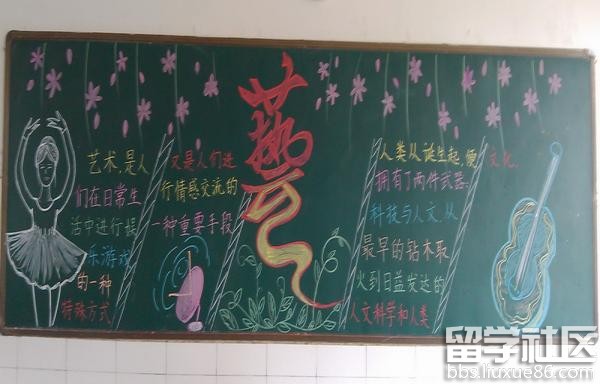 艺术,是人
们在日常生
活中进行娱
乐游戏
的一种
特殊方式
又是人们进
行情感交流的
一种重要手段
藝
人类从诞生起,便
拥有了两件武器:
科技与人文,从
最早的钻木取
火到日益发达的
人文科学和人类
文化.
留学社区
bbs.liuxue86.com